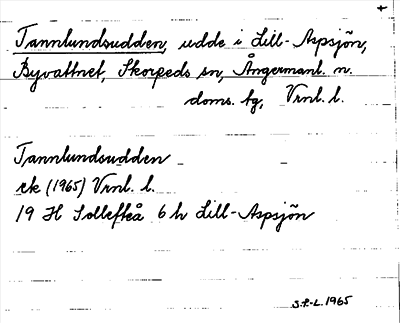 +
Tannlundsudden, udde i Lill-Aspsjön,
Byvattnet, Skorpeds sn, Ångermanl. n.
doms. tg, Vrnl. l.
Tannlundsudden
ek (1965) Vrnl. l.
19 H Sollefteå 6 h Lill-Aspsjön
S.F-L. 1965